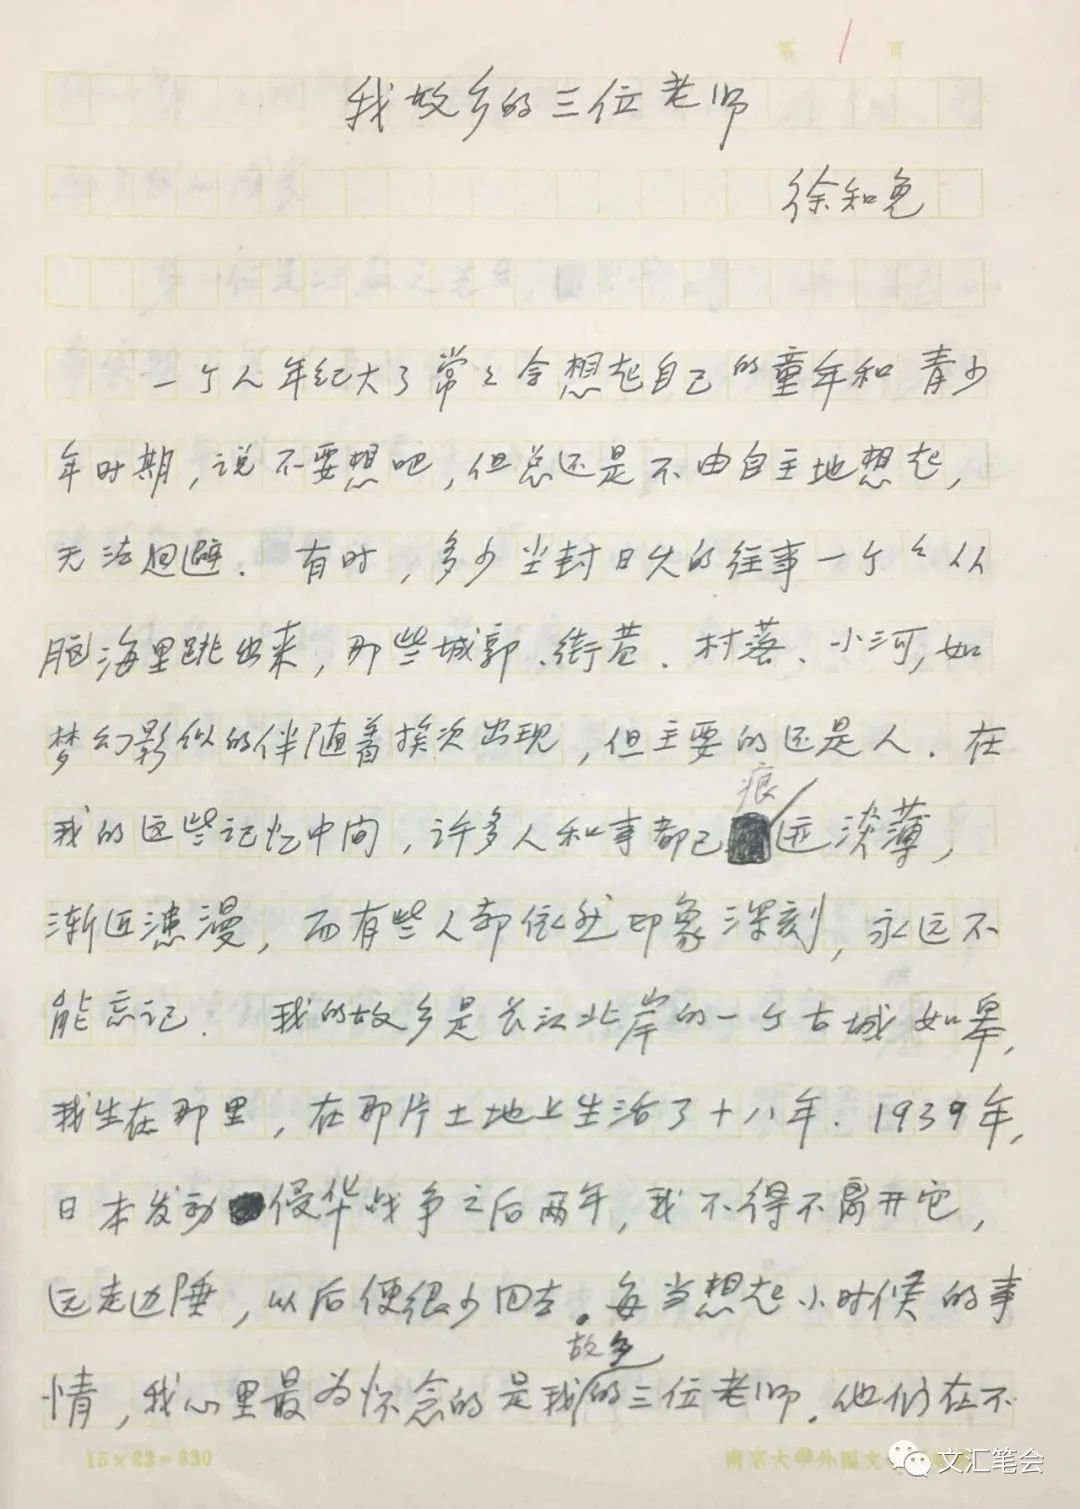 第 1 页
我故乡的三位老师
徐知免
一个人年纪大了常々会想起自己的童年和青少
年时期，说不要想吧，但总还是不由自主地想起，
无法迴避．有时，多少尘封日久的往事一个々从
脑海里跳出来，那些城郭、街巷、村落、小河，如
梦幻影似的伴随着挨次出现，但主要的还是人．在
痕
我的这些记忆中间，许多人和事都已远淡薄，
渐近漶漫，而有些人却依然印象深刻，永远不
能忘记．我的故乡是长江北岸的一个古城如皋，
我生在那里，在那片土地上生活了十八年．1939年，
日本发动侵华战争之后两年，我不得不离开它，
远走边陲，以后便很少回去。每当想起小时候的事
故乡
情，我心里最为怀念的是我的三位老师．他们在不
15×22=330
南京大学外国文
文汇笔会